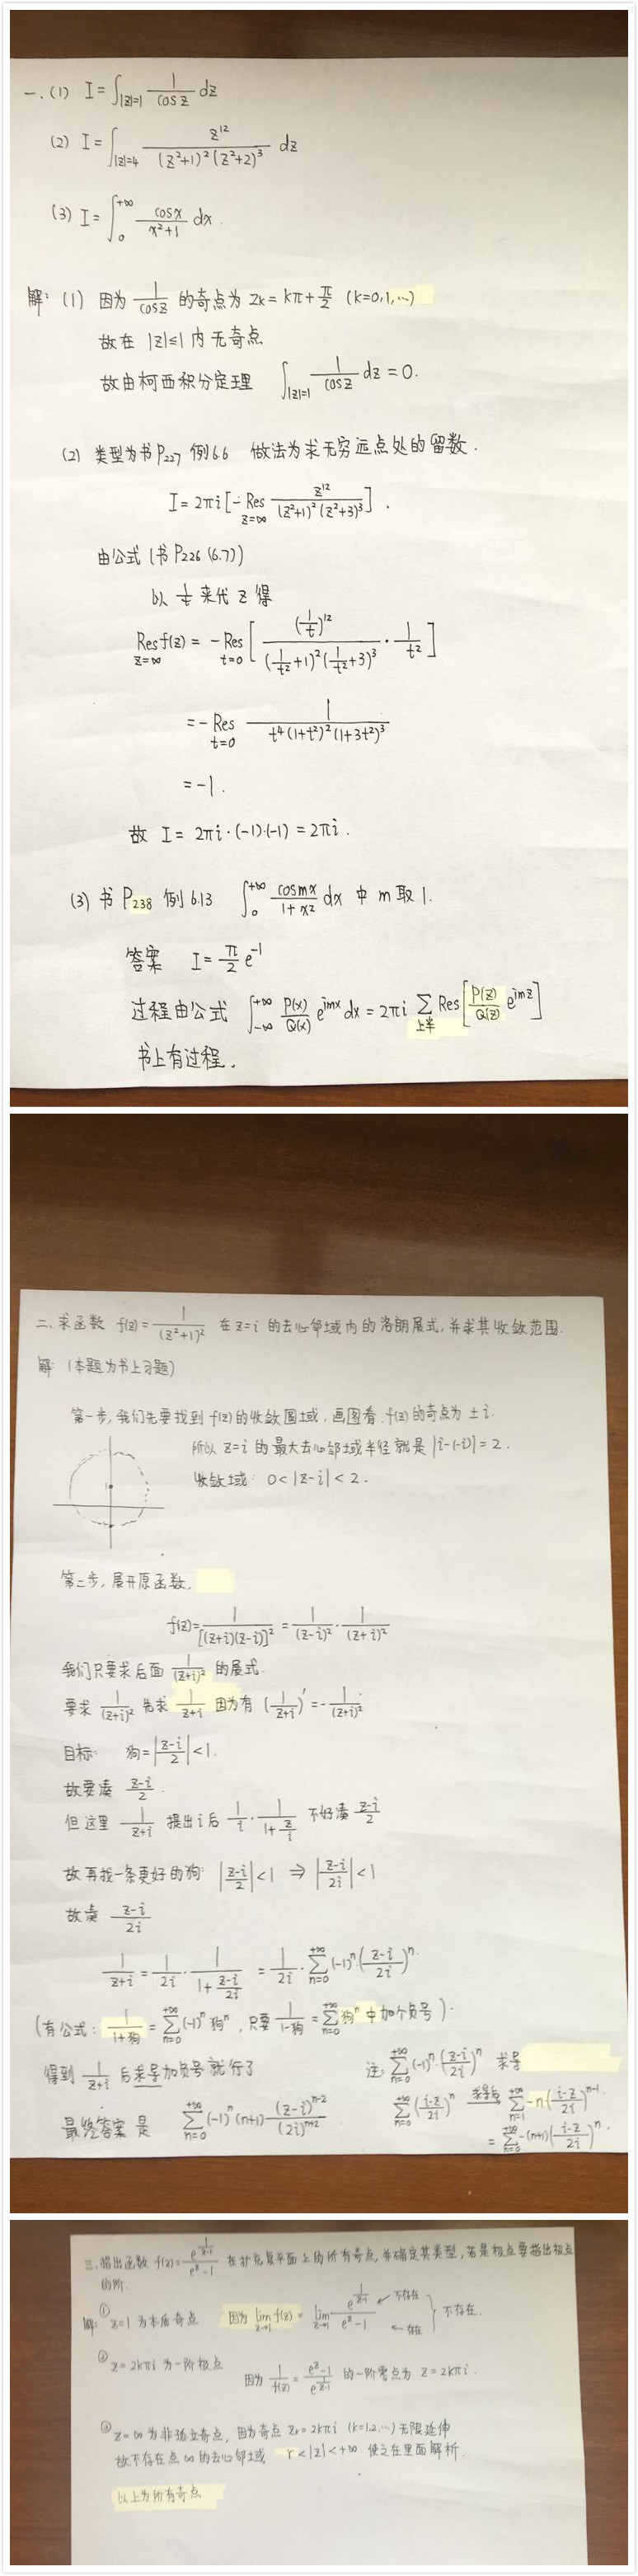 一.(1) I=∫_{|z|=1} 1/cosz dz
(2) I=∫_{|z|=4} z^12/((z²+1)²(z²+2)³) dz
(3) I=∫_0^{+∞} cosx/(x²+1) dx.
解:(1) 因为 1/cosz 的奇点为 Zk=kπ+π/2 (k=0,1,…)
故在 |z|≤1 内无奇点
故由柯西积分定理 ∫_{|z|=1} 1/cosz dz=0.
(2) 类型为书P227 例6.6 做法为求无穷远点处的留数.
I=2πi[-Res_{z=∞} z^12/((z²+1)²(z²+3)³)].
由公式(书P226 (6.7))
以 1/t 来代 z 得
Res_{z=∞} f(z)=-Res_{t=0}[(1/t)^12/((1/t²+1)²(1/t²+3)³)·1/t²]
=-Res_{t=0} 1/(t⁴(1+t²)²(1+3t²)³)
=-1.
故 I=2πi·(-1)·(-1)=2πi.
(3) 书P238 例6.13 ∫_0^{+∞} cosmx/(1+x²) dx 中 m 取 1.
答案 I=π/2 e^{-1}
过程由公式 ∫_{-∞}^{+∞} P(x)/Q(x) e^{imx} dx=2πi ∑_{上半} Res[P(z)/Q(z) e^{imz}]
书上有过程.
二.求函数 f(z)=1/(z²+1)² 在 z=i 的去心邻域内的洛朗展式,并求其收敛范围.
解:(本题为书上习题)
第一步,我们先要找到f(z)的收敛圆域,画图看.f(z)的奇点为 ±i.
所以 z=i 的最大去心邻域半径就是 |i-(-i)|=2.
收敛域: 0<|z-i|<2.
第二步,展开原函数,
f(z)=1/[(z+i)(z-i)]²=1/(z-i)²·1/(z+i)²
我们只要求后面 1/(z+i)² 的展式.
要求 1/(z+i)² 先求 1/(z+i) 因为有 (1/(z+i))'=-1/(z+i)²
目标: 狗=|(z-i)/2|<1.
故要凑 (z-i)/2.
但这里 1/(z+i) 提出i后 1/i·1/(1+z/i) 不好凑 (z-i)/2
故再找一条更好的狗: |(z-i)/2|<1 ⇒ |(z-i)/2i|<1
故凑 (z-i)/2i
1/(z+i)=1/2i·1/(1+(z-i)/2i)=1/2i·∑_{n=0}^{+∞}(-1)^n·((z-i)/2i)^n.
(有公式: 1/(1+狗)=∑_{n=0}^{+∞}(-1)^n狗^n,只要 1/(1-狗)=∑_{n=0}^{+∞}狗^n 中加个负号).
得到 1/(z+i) 后求导加负号就行了
最终答案是 ∑_{n=0}^{+∞}(-1)^n(n+1)·(z-i)^{n-2}/(2i)^{n+2}
注: ∑_{n=0}^{+∞}(-1)^n·((z-i)/2i)^n 求导
∑_{n=0}^{+∞}((i-z)/2i)^n 求导后 ∑_{n=1}^{+∞}-n((i-z)/2i)^{n-1}.
=∑_{n=0}^{+∞}-(n+1)((i-z)/2i)^n.
三.指出函数 f(z)=e^{1/(z-1)}/(e^z-1) 在扩充复平面上的所有奇点,并确定其类型,若是极点要指出极点
的阶.
解:① z=1 为本质奇点 因为 lim_{z→1} f(z)=lim_{z→1} e^{1/(z-1)}/(e^z-1) ←不存在 ←存在 }不存在.
② z=2kπi 为一阶极点 因为 1/f(z)=(e^z-1)/e^{1/(z-1)} 的一阶零点为 z=2kπi.
③ z=∞ 为非孤立奇点,因为奇点 Zk=2kπi (k=1,2,…)无限延伸
故不存在点∞的去心邻域 r<|z|<+∞ 使之在里面解析.
以上为所有奇点